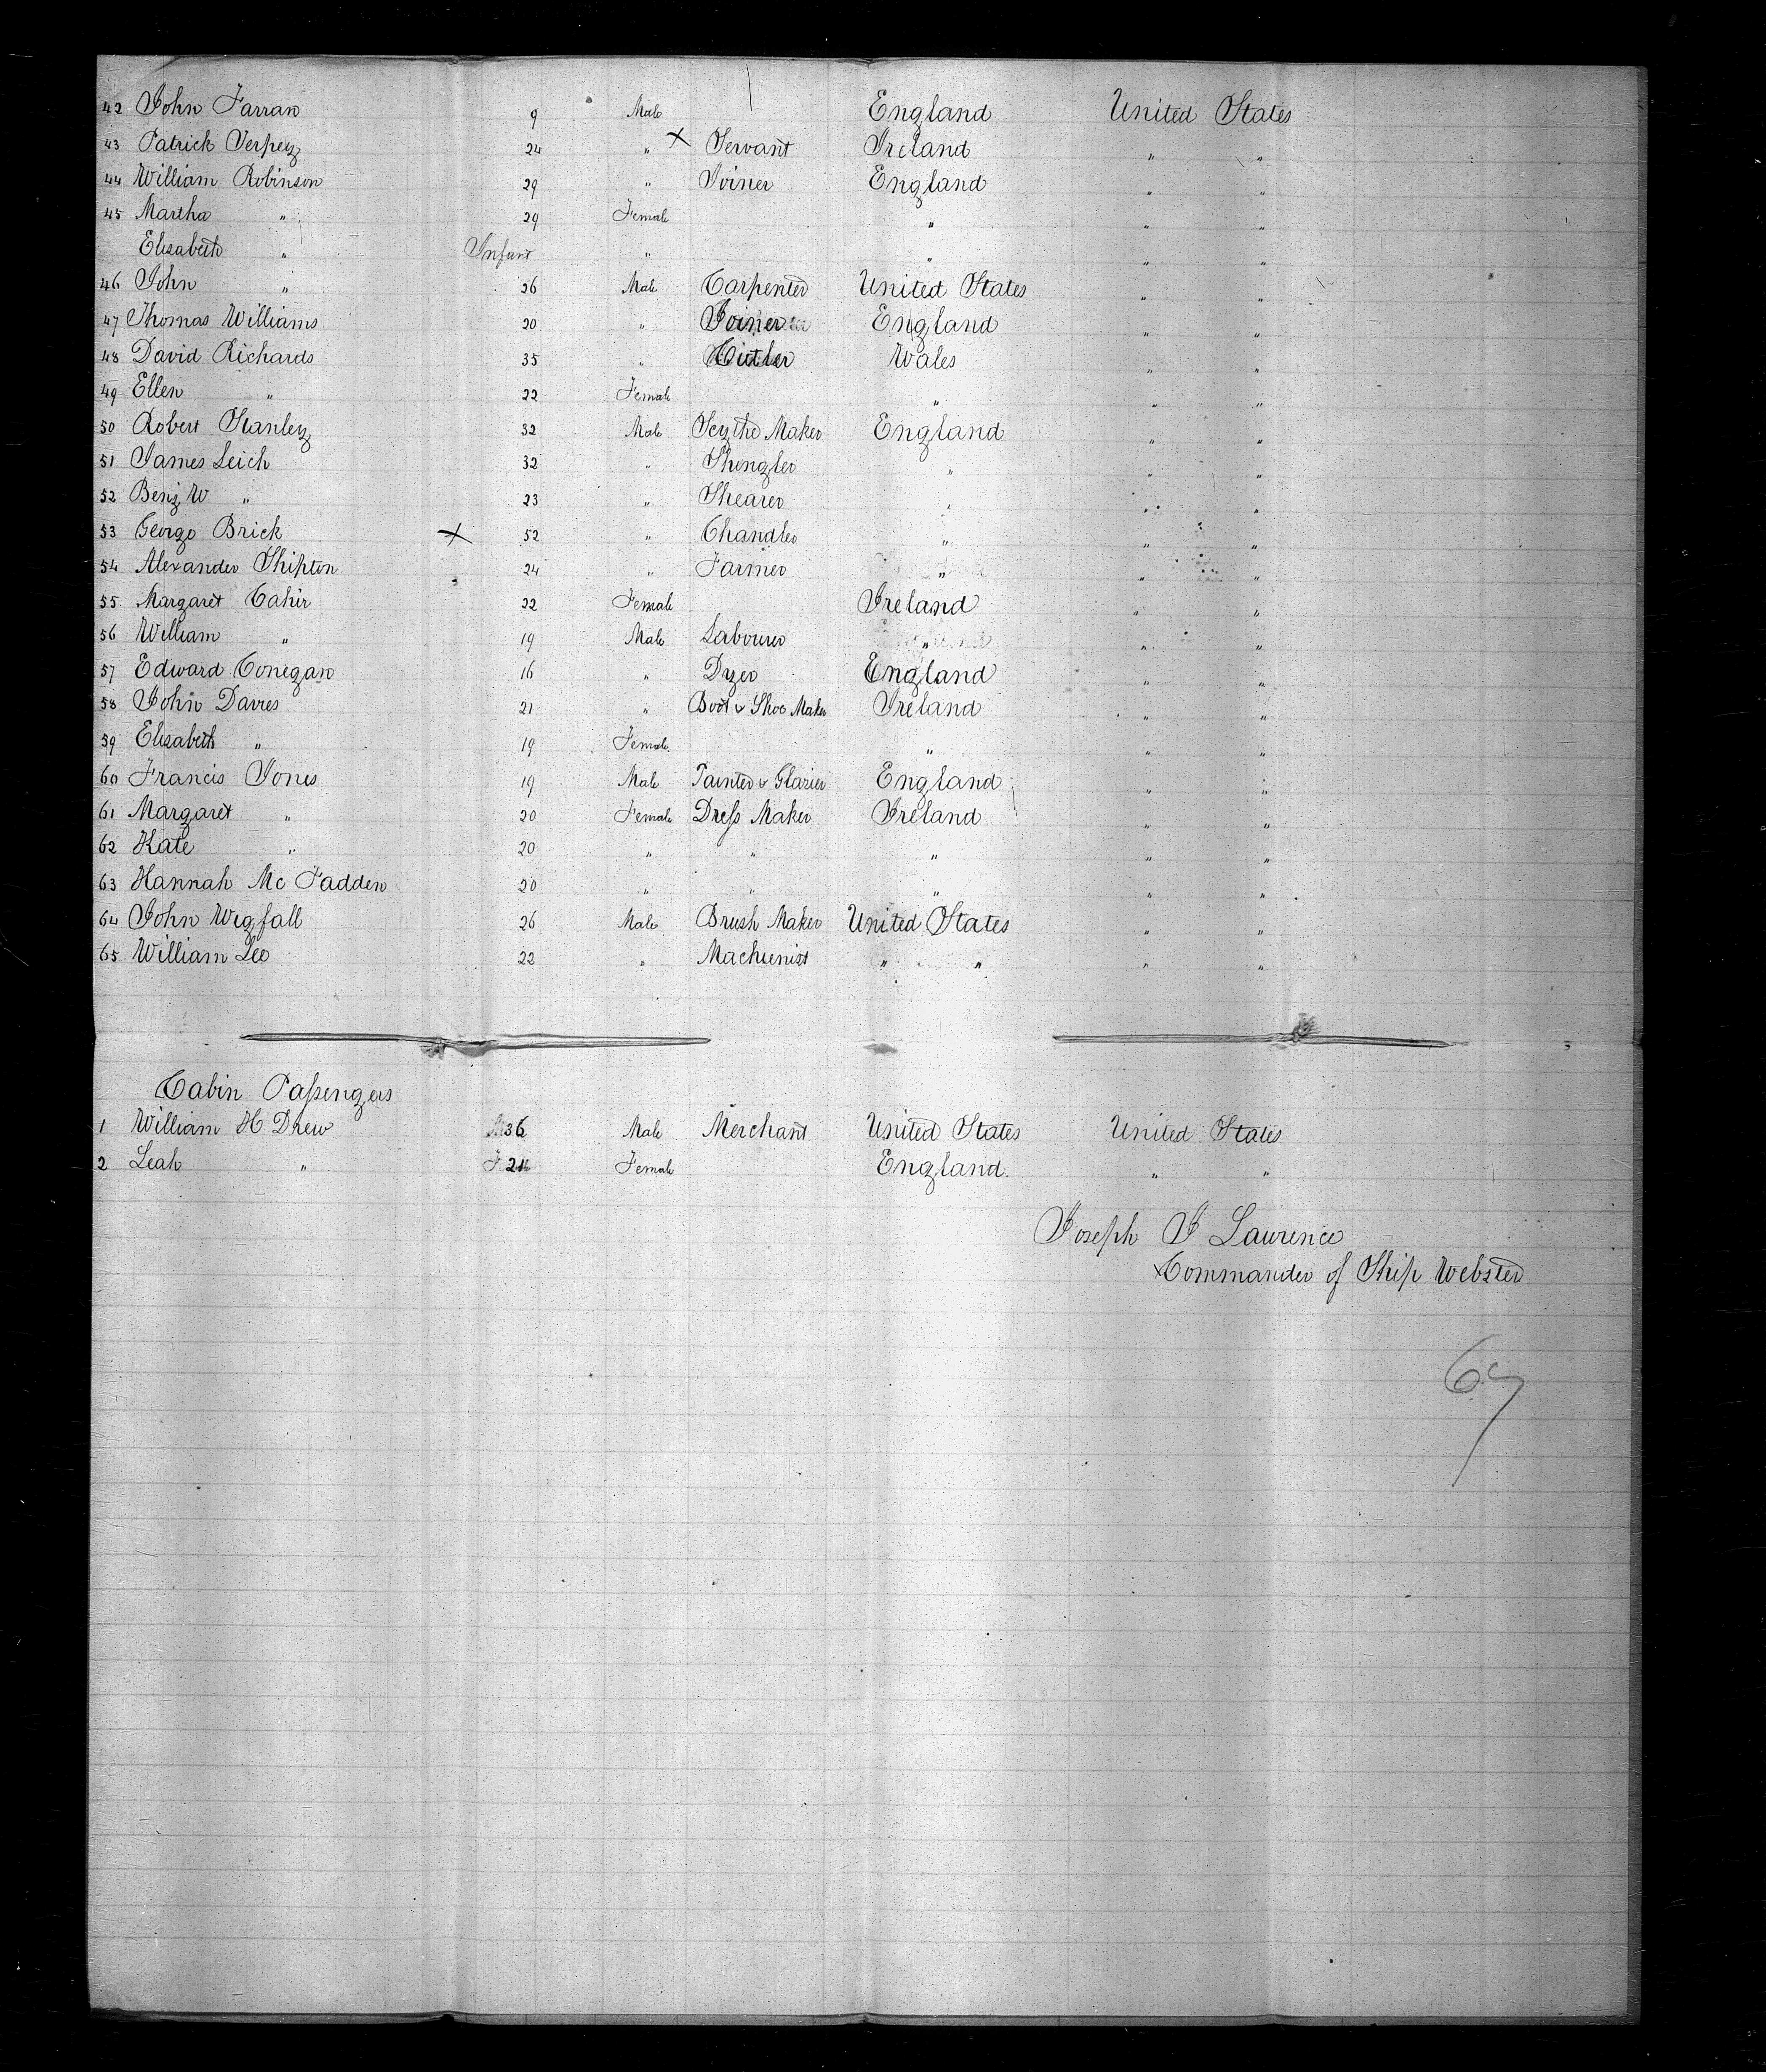 42 John Farran 9 Male England United States
43 Patrick Serpey 24 " X Servant Ireland " "
44 William Robinson 29 " Joiner England " "
45 Martha " 29 Female " " "
Elisabeth " Infant " " " "
46 John " 26 Male Carpenter United States " "
47 Thomas Williams 20 " Joiner England " "
48 David Richards 35 " Cutler Wales " "
49 Ellen " 22 Female " " "
50 Robert Stanley 32 Male Scythe Maker England " "
51 James Leich 32 " Shingler " " "
52 Benj W " 23 " Shearer " " "
53 George Brick X 52 " Chandler " " "
54 Alexander Shipton 24 " Farmer " " "
55 Margaret Cahir 22 Female Ireland " "
56 William " 19 Male Labourer " " "
57 Edward Conegan 16 " Dyer England " "
58 John Davies 21 " Boot & Shoe Maker Ireland " "
59 Elisabeth " 19 Female " " "
60 Francis Jones 19 Male Painter & Glazier England " "
61 Margaret " 20 Female Dress Maker Ireland " "
62 Kate " 20 " " " " "
63 Hannah Mc Fadden 20 " " " " "
64 John Wigfall 26 Male Brush Maker United States " "
65 William Lee 22 " Machienist " " " "
Cabin Passengers
1 William H Drew 36 Male Merchant United States United States
2 Leah " Female England " "
Joseph J Lawrence
Commander of Ship Webster
67